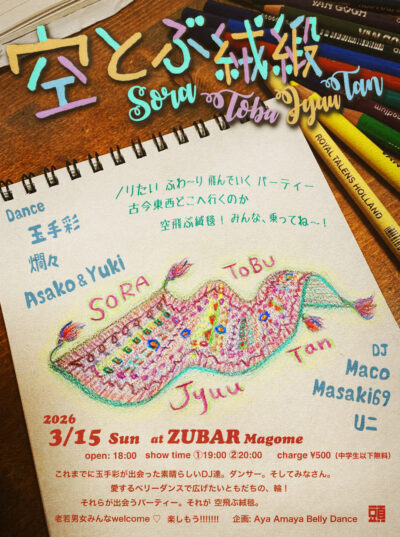 VAN GOGH
空とぶ絨緞
Sora Toba Jyuu Tan
ROYAL TALENS HOLLAND
ノリたい ふわ〜り 飛んでいく パーティー
古今東西どこへ行くのか
空飛ぶ絨毯！みんな、乗ってね〜！
Dance
玉手彩
燗々
Asako & Yuki
SORA
TOBU
Jyuu
Tan
DJ
Maco
Masaki69
Uニ
2026
3/15 Sun at ZUBAR Magome
open: 18:00 show time ①19:00 ②20:00 charge ¥500（中学生以下無料）
これまでに玉手彩が出会った素晴らしいDJ達。ダンサー。そしてみなさん。
愛するベリーダンスで広げたいともだちの、輪！
それらが出会うパーティー。それが 空飛ぶ絨毯。
老若男女みんなwelcome ♡ 楽しもう!!!!!!! 企画: Aya Amaya Belly Dance
頭